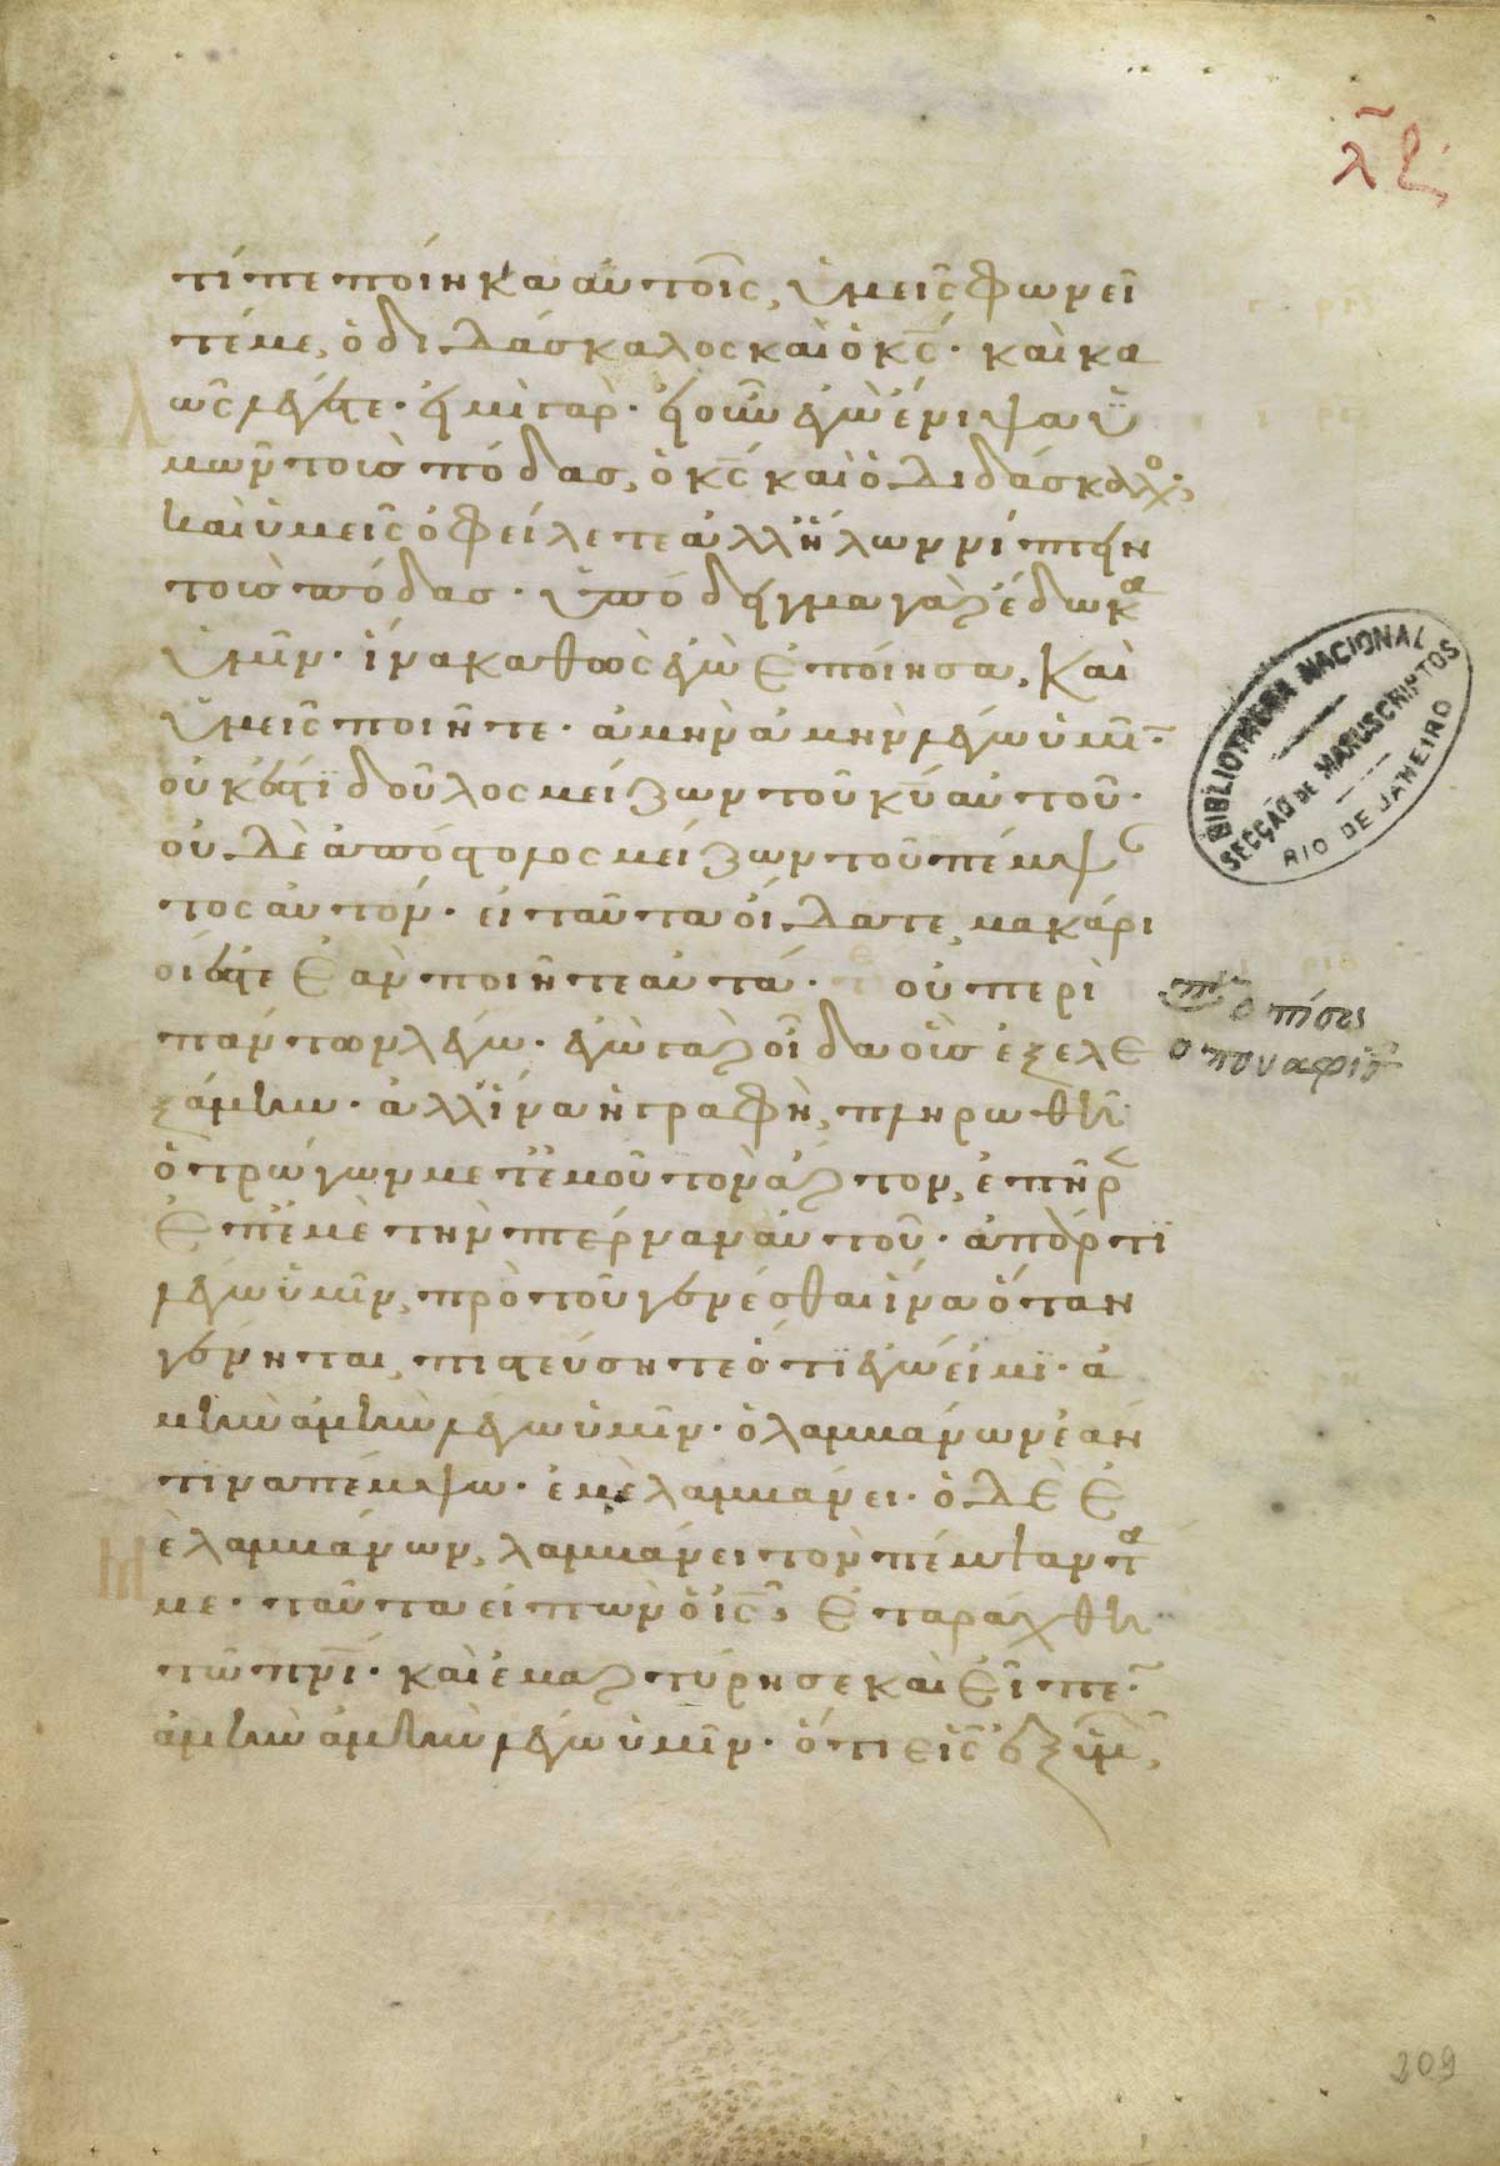 λζ
τί πεποίηκα αὐτοῖς, ὑμεῖς φωνεῖ
τέ με, ὁ διδάσκαλος καὶ ὁ κς· καὶ κα
λῶς λέγετε· εἰμὶ γάρ· εἰ οὖν ἐγὼ ἔνιψα ὑ
μῶν τοὺς πόδας, ὁ κς καὶ ὁ διδάσκαλος,
καὶ ὑμεῖς ὀφείλετε ἀλλήλων νίπτειν
τοὺς πόδας· ὑπόδειγμα γὰρ ἔδωκα
ὑμῖν· ἵνα καθὼς ἐγὼ ἐποίησα, καὶ
ὑμεῖς ποιῆτε· ἀμὴν ἀμὴν λέγω ὑμῖ·
οὐκ ἔστι δοῦλος μείζων τοῦ κυ αὐτοῦ·
οὐδὲ ἀπόστολος μείζων τοῦ πέμψαν
τος αὐτόν· εἰ ταῦτα οἴδατε, μακάρι
οί ἐστε ἐὰν ποιῆτε αὐτά· οὐ περὶ
πάντων λέγω· ἐγὼ γὰρ οἶδα οὓς ἐξελε
ξάμην· ἀλλ' ἵνα ἡ γραφὴ, πληρωθῆ·
ὁ τρώγων μετ' ἐμοῦ τὸν ἄρτον, ἐπῆρεν
ἐπ' ἐμὲ τὴν πτέρναν αὐτοῦ· ἀπ' ἄρτι
λέγω ὑμῖν, πρὸ τοῦ γενέσθαι ἵνα ὅταν
γένηται, πιστεύσητε ὅτι ἐγώ εἰμι· ἀ
μὴν ἀμὴν λέγω ὑμῖν· ὁ λαμβάνων ἐάν
τινα πέμψω· ἐμὲ λαμβάνει· ὁ δὲ ἐ
μὲ λαμβάνων, λαμβάνει τὸν πέμψαντα
με· ταῦτα εἰπὼν ὁ ις, ἐταράχθη
τῶ πνι· καὶ ἐμαρτύρησε καὶ εἶπε·
ἀμὴν ἀμὴν λέγω ὑμῖν· ὅτι εἷς ἐξ ὑμῶν,
BIBLIOTHECA NACIONAL
SECÇÃO DE MANUSCRIPTOS
RIO DE JANEIRO
209